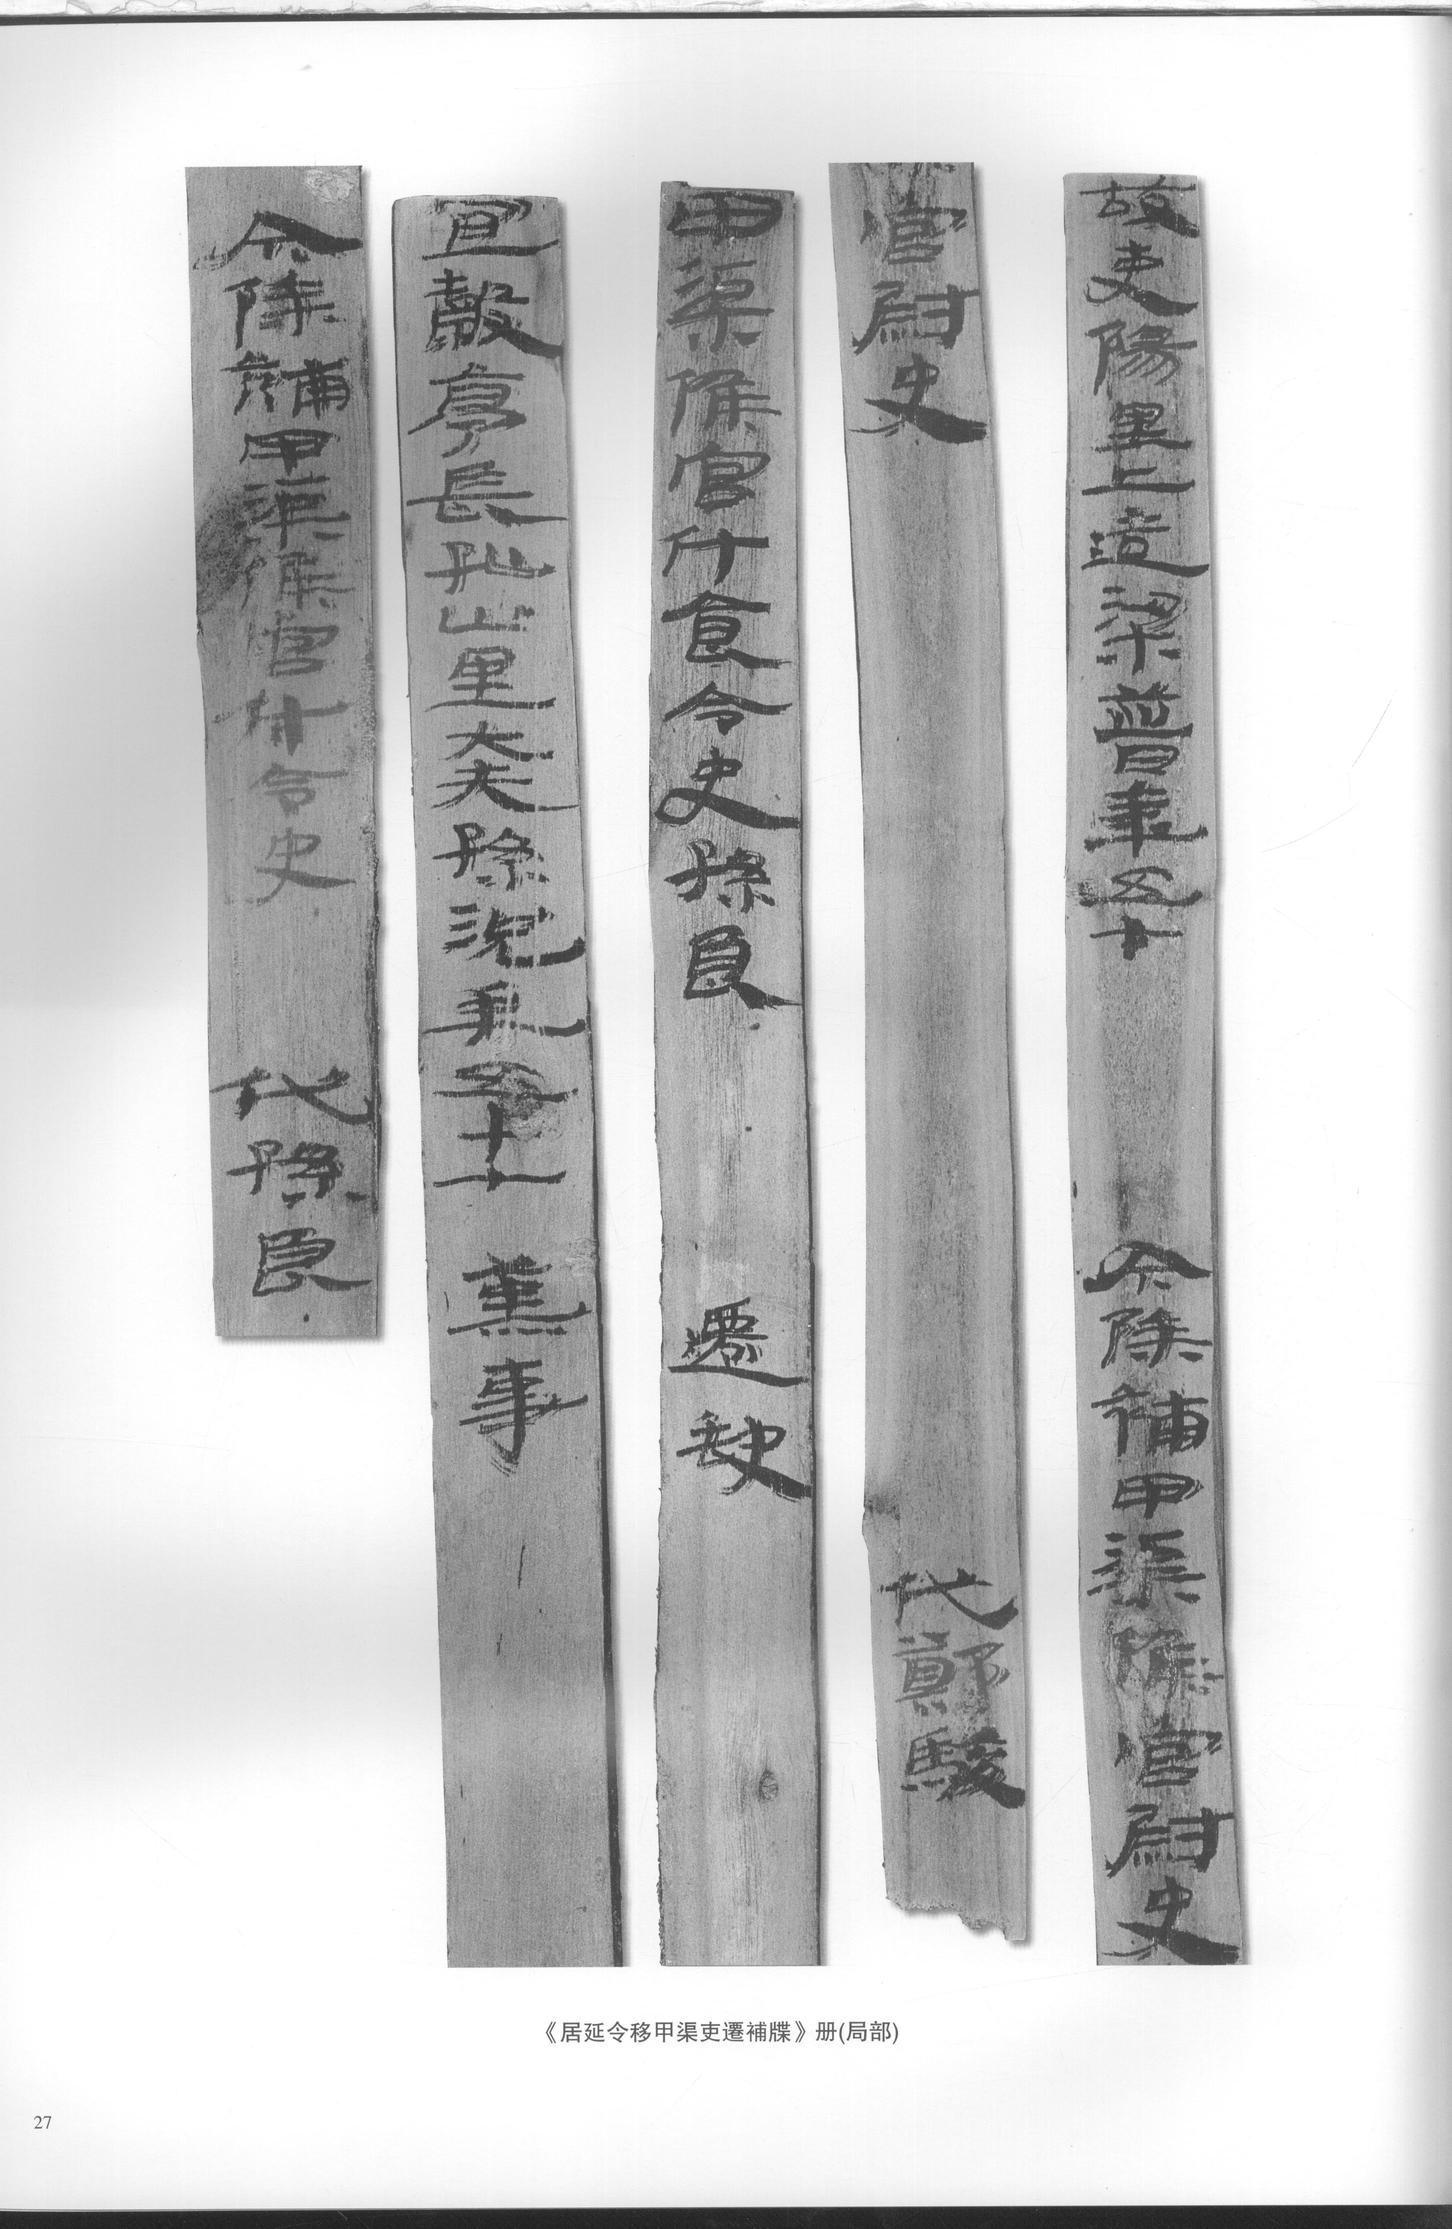 故吏陽里上造梁普年五十 今除補甲渠候官尉史
官尉史 代鄭駿
甲渠候官斗食令史孫良 遷缺
宜穀亭長孤山里大夫孫況年五十七 薰事
今除補甲渠候官斗令史 代孫良
《居延令移甲渠吏遷補牒》册(局部)
27